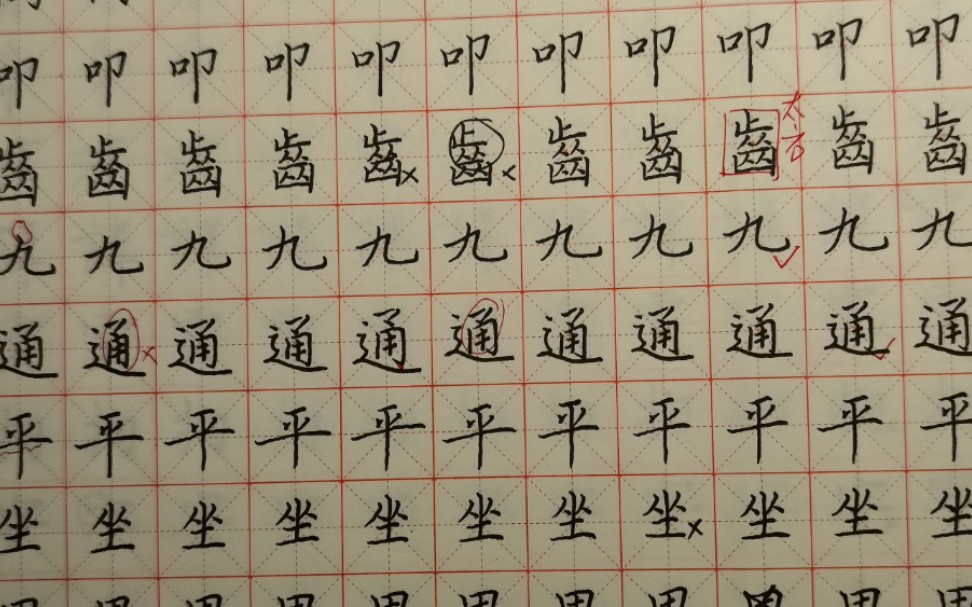 叩叩叩叩叩叩叩叩叩叩叩
齒齒齒齒齒齒齒齒齒齒齒
太方
九九九九九九九九九九九
通通通通通通通通通通通
平平平平平平平平平平平
坐坐坐坐坐坐坐坐坐坐坐